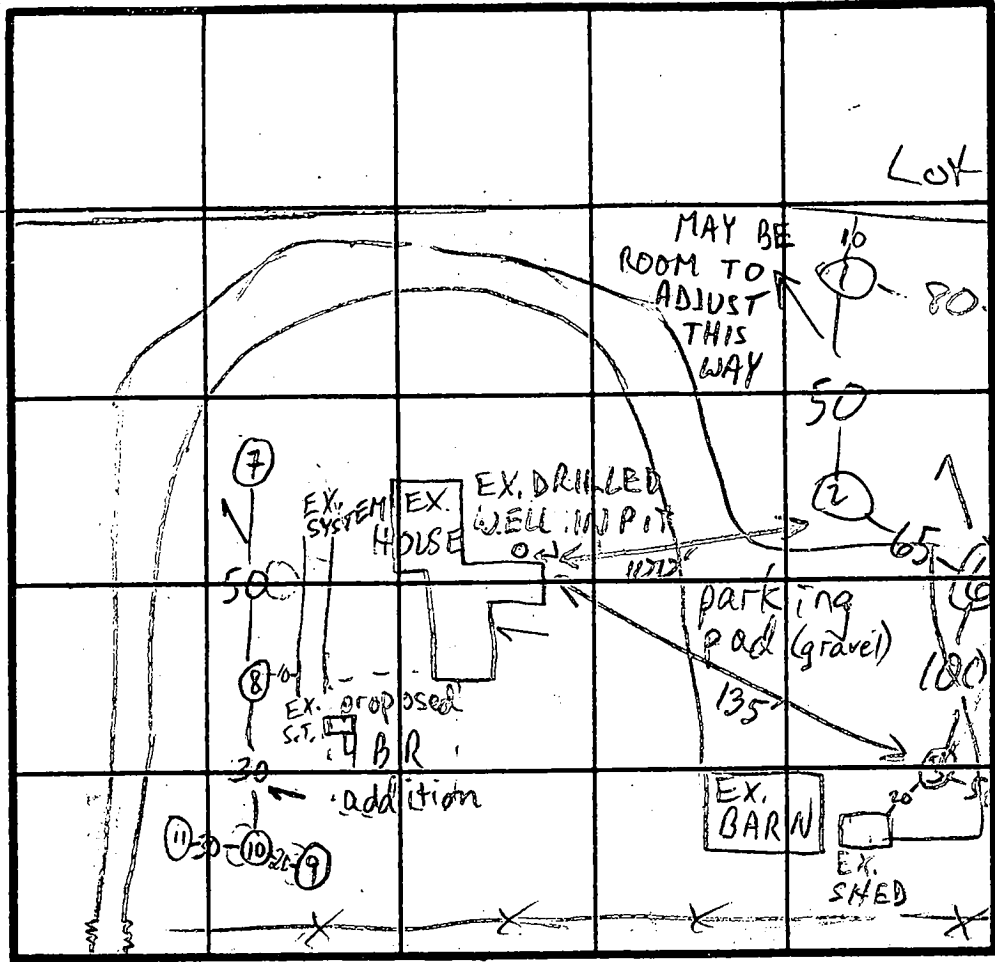 Lot
MAY BE
ROOM TO
ADJUST
THIS
WAY
10
1
80
50
2
65
7
EX.
SYSTEM
EX.
HOUSE
EX. DRILLED
WELL IN PIT
50
8
10
parking
pad (gravel)
100
135'
EX.
S.T.
proposed
BR
addition
30
11
30
10
20
9
EX.
BARN
20
EX.
SHED